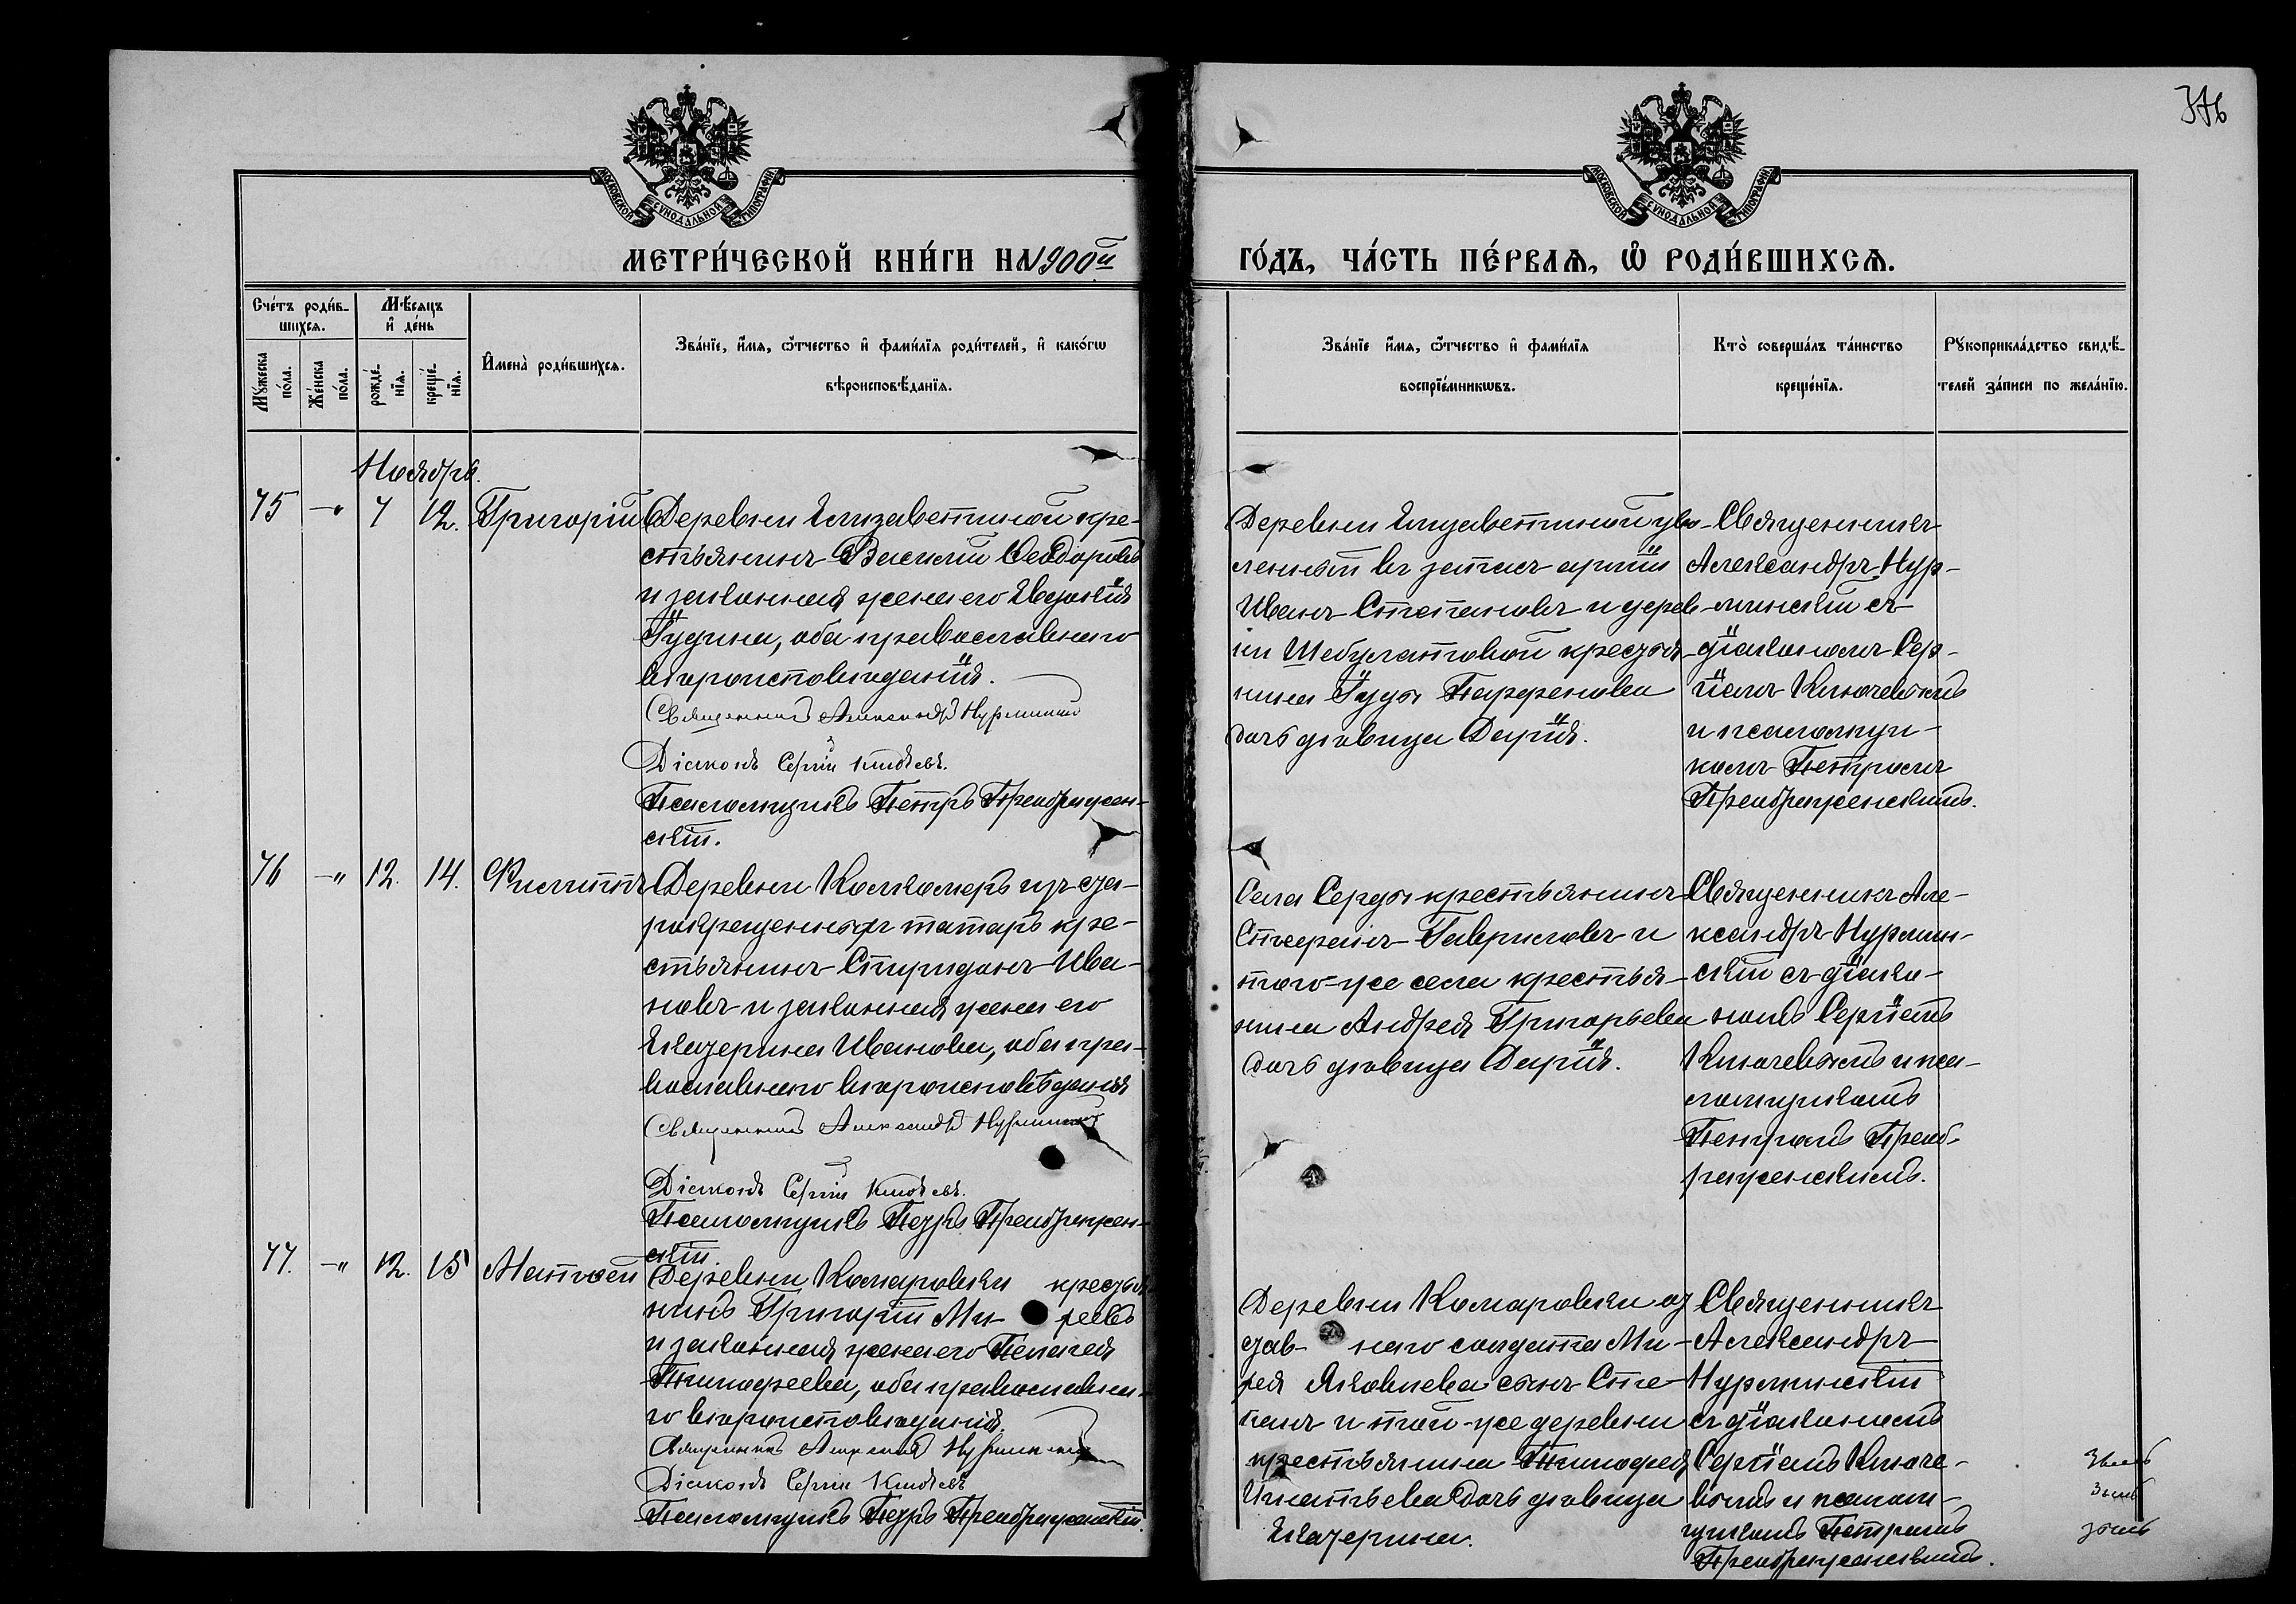 376
МОСКОВСКОЙ СѴНОДАЛЬНОЙ ТИПОГРАФІИ
МОСКОВСКОЙ СѴНОДАЛЬНОЙ ТИПОГРАФІИ
МЕТРИ́ЧЕСКОЙ КНИ́ГИ НА 1900й
ГО́ДЪ, ЧА́СТЬ ПЕ́РВАѦ, Ѡ РОДИ́ВШИХСѦ.
Сче́тъ роди́в-
шихсѧ.
Мѣ́сѧцъ
и҆ де́нь
Мꙋ́жеска
по́ла.
Же́нска
по́ла.
рожде́-
нїѧ.
креще́-
нїѧ.
И҆мена̀ роди́вшихсѧ.
Зва́нїе, и҆́мѧ, ѻ҆́тчество и҆ фами́лїѧ роди́телей, и҆ како́гѡ
вѣроисповѣ́данїѧ.
Зва́нїе и҆́мѧ, ѻ҆́тчество и҆ фами́лїѧ
воспрїе́мникѡвъ.
Кто̀ соверша́лъ та́инство
креще́нїѧ.
Рꙋкоприкла́дство свидѣ́-
телей за́писи по жела́нїю.
Ноябрь.
75 -„ 7 12. Григорій
Деревни Елизаветиной кре-
стьянинъ Василій Ѳеодоровъ
и законная жена его Евдокія
Гудина, оба православнаго
вѣроисповѣданія.
Священникъ Александръ Нурминскій
Діаконъ Сергій Ключевъ.
Псаломщикъ Петръ Преображен-
скій.
Деревни Елизаветиной уво-
ленный въ запасъ арміи
Иванъ Степановъ и дерев-
ни Шебулатовой крестья-
нина Парфенова
дочь дѣвица Дарія.
Священникъ
Александръ Нур-
минскій съ
діакономъ Сер-
гіемъ Ключевымъ
и псаломщи-
комъ Петромъ
Преображенскимъ.
76 -„ 12. 14. Филиппъ
Деревни изъ ста-
рокрещенныхъ татаръ кре-
стьянинъ Спиридонъ Ива-
новъ и законная жена его
Екатерина Иванова, оба пра-
вославнаго вѣроисповѣданія
Священникъ Александръ Нурминскій
Діаконъ Сергій Ключевъ.
Псаломщикъ Петръ Преображен-
скій.
Села Серды крестьянинъ
Стефанъ Гавриловъ и
того=же села крестья-
нина Андрея Григорьева
дочь дѣвица Дарія.
Священникъ Але-
ксандръ Нурмин-
скій съ діако-
номъ Сергіемъ
Ключевымъ и пса-
ломщикомъ
Петромъ Преоб-
раженскимъ.
77. -„ 12. 15 Матвей
Деревни Комаровки крестья-
нинъ Григорій Ми- реевъ
и законная жена его Пелагея
Тимофеева, оба православна-
го вѣроисповѣданія.
Священникъ Александръ Нурминскій
Діаконъ Сергій Ключевъ
Псаломщикъ Петръ Преображенскій.
Деревни Комаровки от
став- наго солдата Ми-
рея Яковлева сынъ Сте-
панъ и той-же деревни
крестьянина Тимофея
Игнатьева дочь дѣвица
Екатерина.
Священникъ
Александръ
Нурминскій
съ діакономъ
Сергіемъ Ключе-
вымъ и псалом-
щикомъ Петромъ
Преображенскимъ.